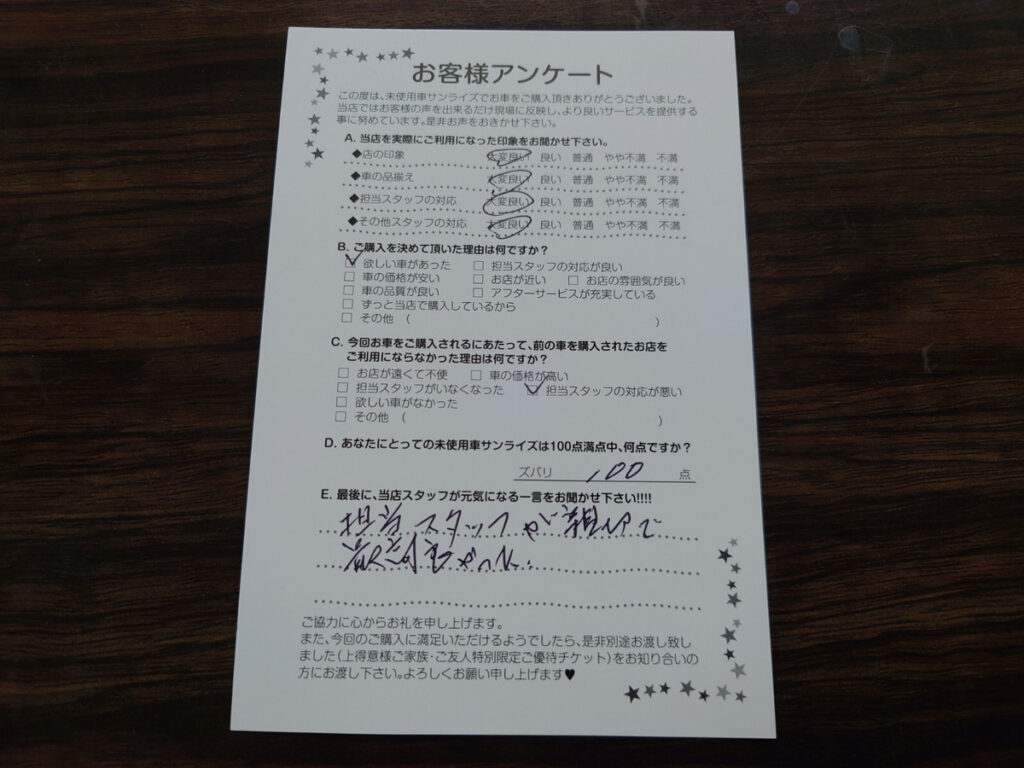 お客様アンケート
この度は、未使用車サンライズでお車をご購入頂きありがとうございました。
当店ではお客様の声を出来るだけ現場に反映し、より良いサービスを提供する
事に努めています。是非お声をおきかせ下さい。
A. 当店を実際にご利用になった印象をお聞かせ下さい。
◆店の印象 大変良い 良い 普通 やや不満 不満
◆車の品揃え 大変良い 良い 普通 やや不満 不満
◆担当スタッフの対応 大変良い 良い 普通 やや不満 不満
◆その他スタッフの対応 大変良い 良い 普通 やや不満 不満
B. ご購入を決めて頂いた理由は何ですか?
☑ 欲しい車があった □ 担当スタッフの対応が良い
□ 車の価格が安い □ お店が近い □ お店の雰囲気が良い
□ 車の品質が良い □ アフターサービスが充実している
□ ずっと当店で購入しているから
□ その他 ( )
C. 今回お車をご購入されるにあたって、前の車を購入されたお店を
ご利用にならなかった理由は何ですか?
□ お店が遠くて不便 □ 車の価格が高い
□ 担当スタッフがいなくなった ☑ 担当スタッフの対応が悪い
□ 欲しい車がなかった
□ その他 ( )
D. あなたにとっての未使用車サンライズは100点満点中、何点ですか?
ズバリ 100 点
E. 最後に、当店スタッフが元気になる一言をお聞かせ下さい!!!!
担当スタッフが親切で
かった.
ご協力に心からお礼を申し上げます。
また、今回のご購入に満足いただけるようでしたら、是非別途お渡し致し
ました(上得意様ご家族・ご友人特別限定ご優待チケット)をお知り合いの
方にお渡し下さい。よろしくお願い申し上げます♥